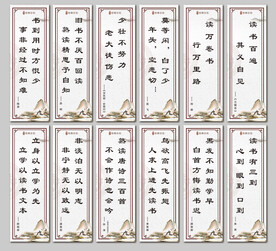 书到用时方恨少
事非经过不知难
旧书不厌百回读
熟读精思子自知
少壮不努力
老大徒伤悲
莫等闲，白了少
年头，空悲切
读万卷书
行万里路
读书百遍
其义自见
立身以立学为先
立学以读书为本
非淡泊无以明志
非宁静无以致远
熟读唐诗三百首
不会作诗也会吟
鸟欲高飞先振翅
人求上进先读书
黑发不知勤学早
白首方悔读书迟
读书有三到
心到眼到口到